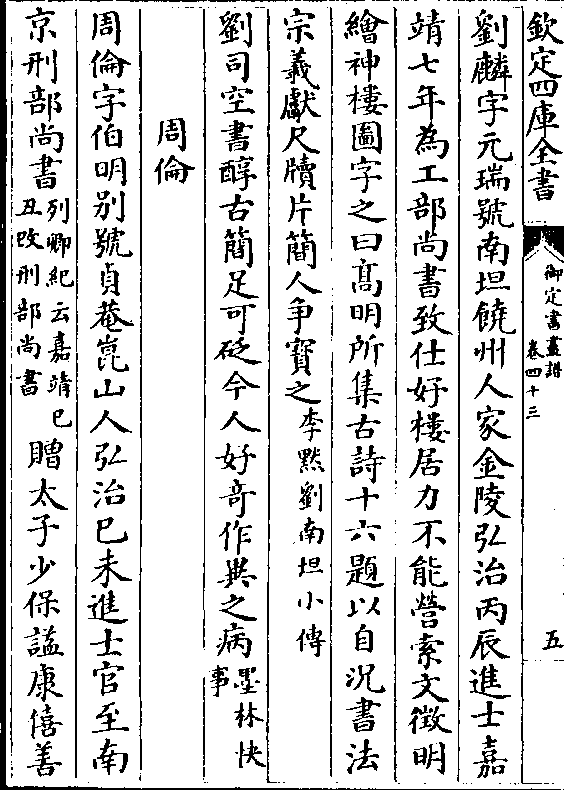 欽定四庫全書
御定書畫譜
卷四十三
五
劉麟字元瑞號南坦饒州人家金陵弘治丙辰進士嘉
靖七年為工部尚書致仕好樓居力不能營索文徵明
繪神樓圖字之曰髙明所集古詩十六題以自況書法
宗羲獻尺牘片簡人争寳之李黙劉南坦小傳
劉司空書醇古簡足可砭今人好竒作㒷之病墨林快
事
周倫
周倫字伯明别號貞菴崑山人弘治己未進士官至南
京刑部尚書列卿紀云嘉靖己
丑改刑部尚書贈太子少保諡康僖善